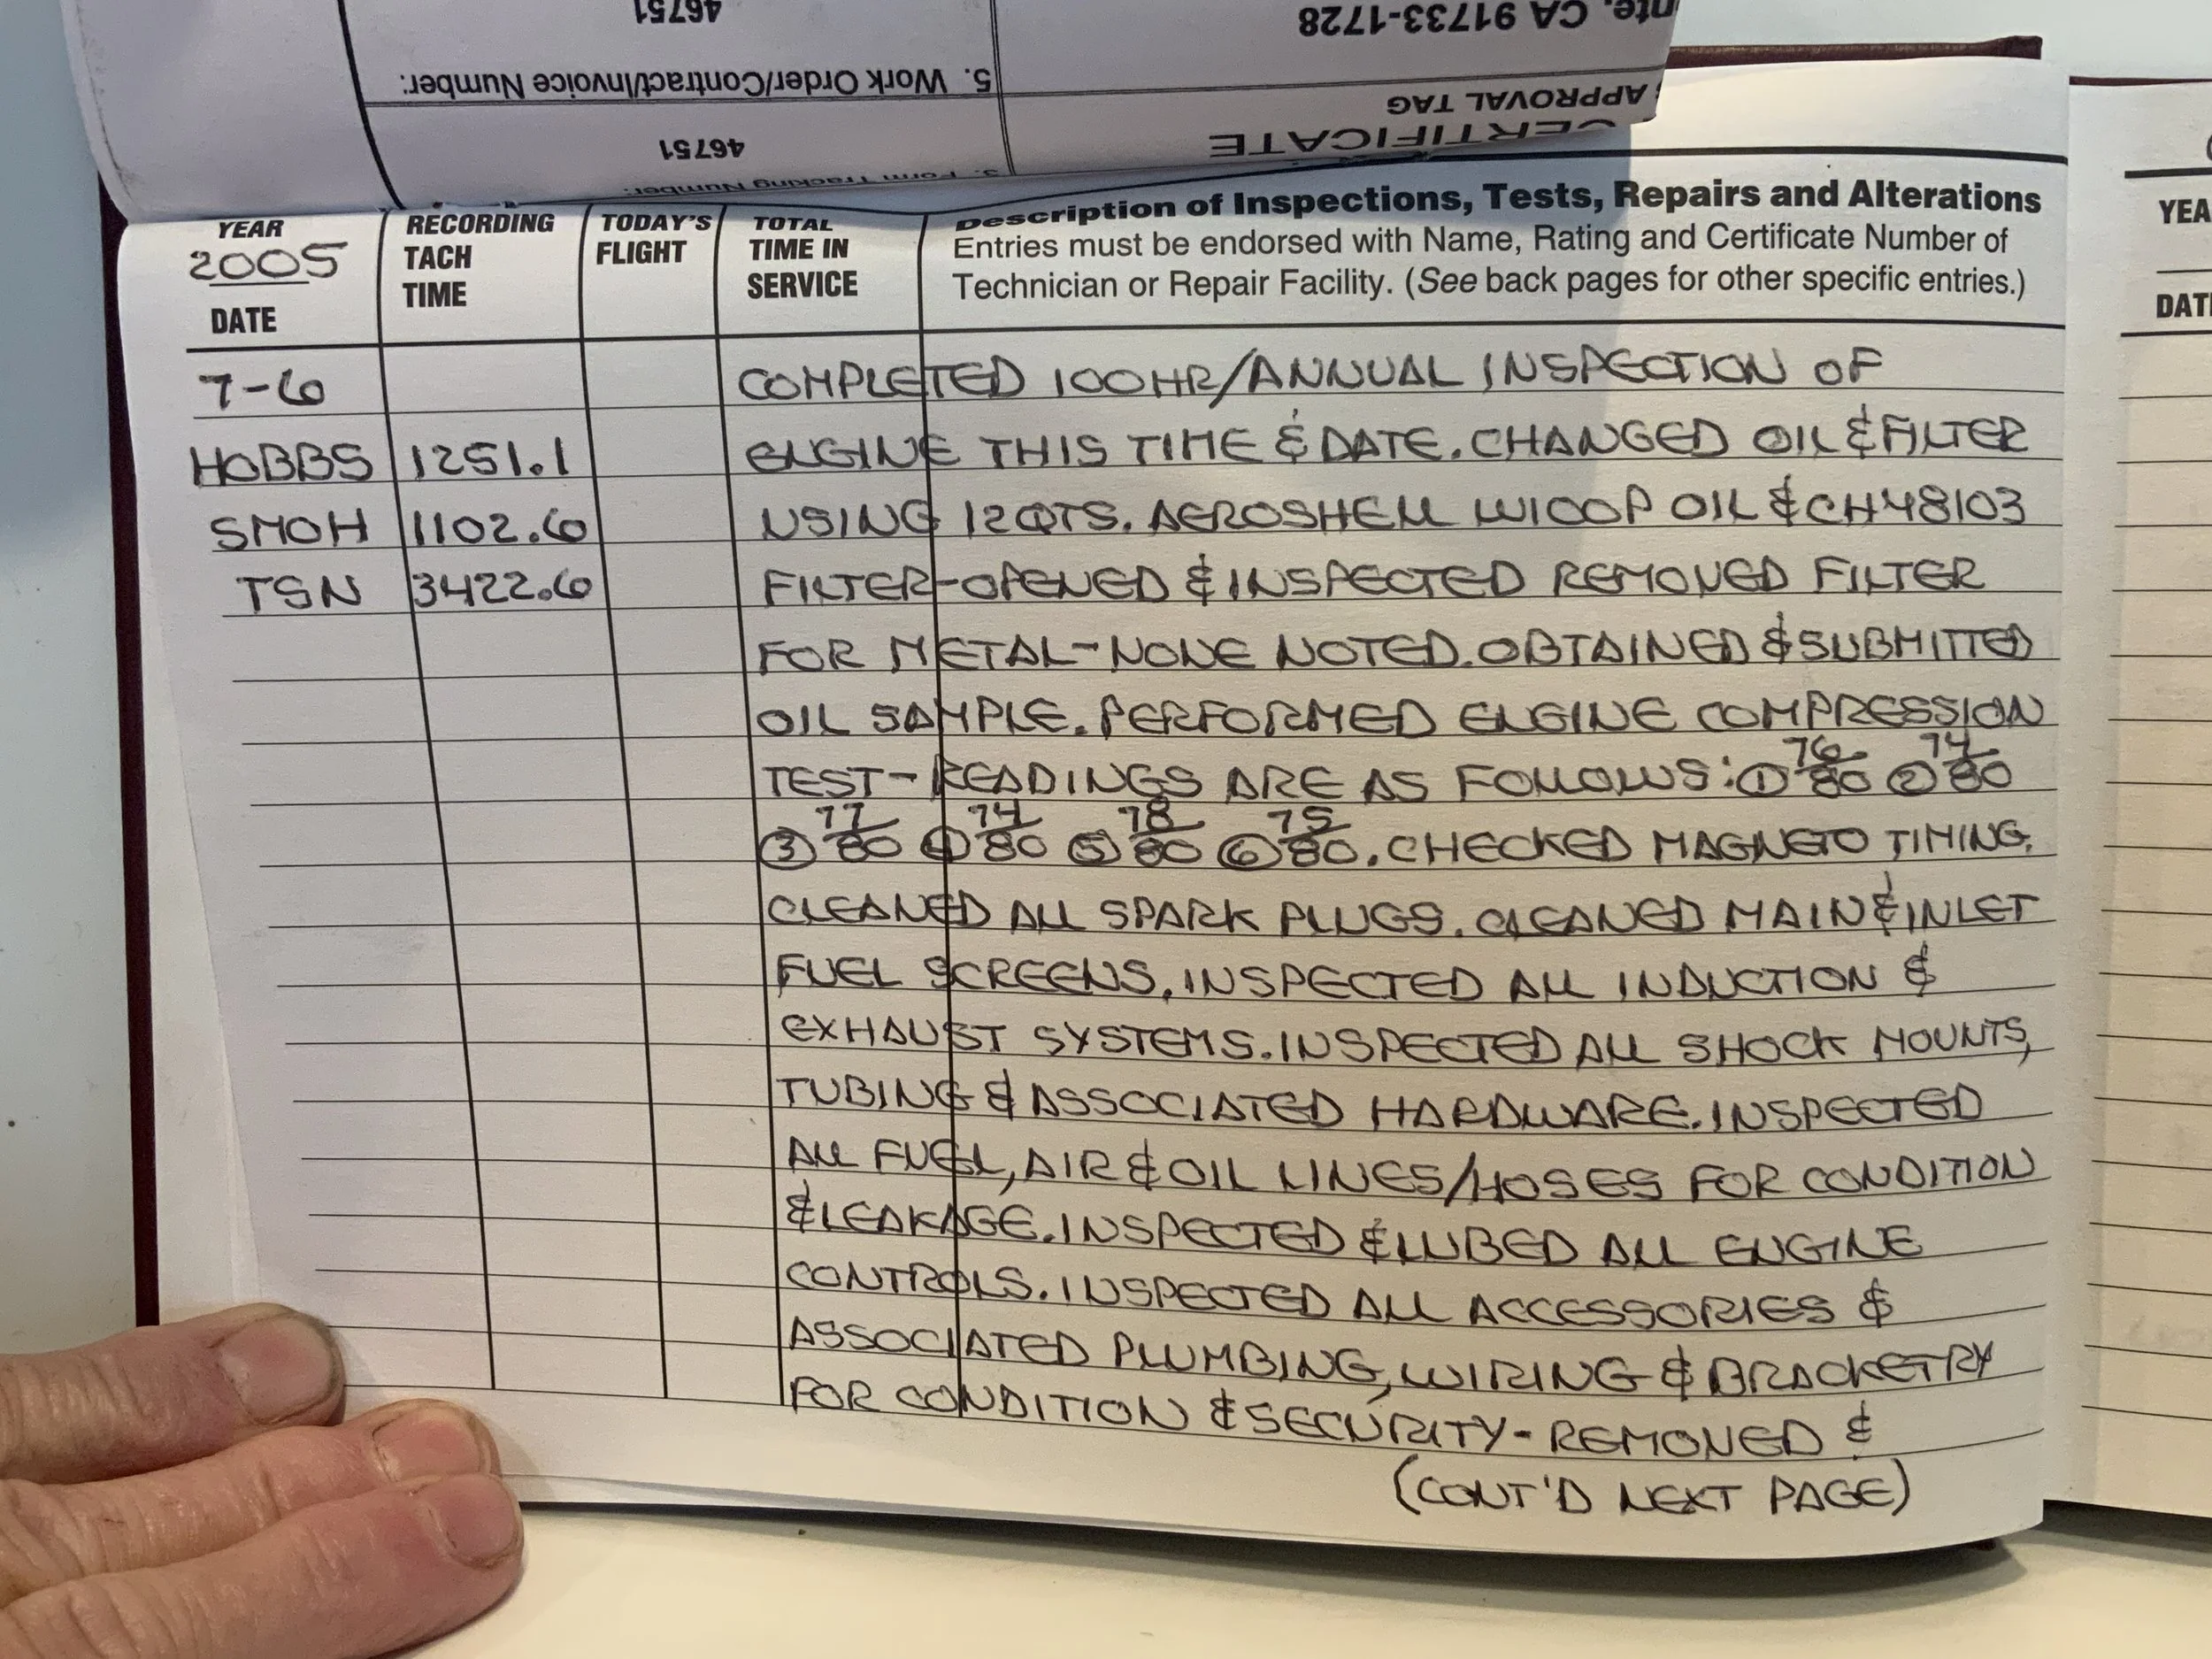 46751
5. Work Order/Contract/Invoice Number:
CA 91733-1728
46751
3. Form Tracking Number:
APPROVAL TAG
CERTIFICATE
YEAR
2005
DATE
RECORDING
TACH
TIME
TODAY'S
FLIGHT
TOTAL
TIME IN
SERVICE
Description of Inspections, Tests, Repairs and Alterations
Entries must be endorsed with Name, Rating and Certificate Number of
Technician or Repair Facility. (See back pages for other specific entries.)
7-6 COMPLETED 100HR/ANNUAL INSPECTION OF
HOBBS 1251.1 ENGINE THIS TIME & DATE. CHANGED OIL & FILTER
SMOH 1102.6 USING 12QTS. AEROSHELL W100P OIL & CH48103
TSN 3422.6 FILTER-OPENED & INSPECTED REMOVED FILTER
FOR METAL-NONE NOTED. OBTAINED & SUBMITTED
OIL SAMPLE. PERFORMED ENGINE COMPRESSION
TEST- READINGS ARE AS FOLLOWS: ① 76/80 ② 74/80
③ 77/80 ④ 74/80 ⑤ 78/80 ⑥ 75/80. CHECKED MAGNETO TIMING.
CLEANED ALL SPARK PLUGS. CLEANED MAIN & INLET
FUEL SCREENS. INSPECTED ALL INDUCTION &
EXHAUST SYSTEMS. INSPECTED ALL SHOCK MOUNTS,
TUBING & ASSOCIATED HARDWARE. INSPECTED
ALL FUEL, AIR & OIL LINES/HOSES FOR CONDITION
& LEAKAGE. INSPECTED & LUBED ALL ENGINE
CONTROLS. INSPECTED ALL ACCESSORIES &
ASSOCIATED PLUMBING, WIRING & BRACKETRY
FOR CONDITION & SECURITY- REMOVED &
(CONT'D NEXT PAGE)
YEA
DAT